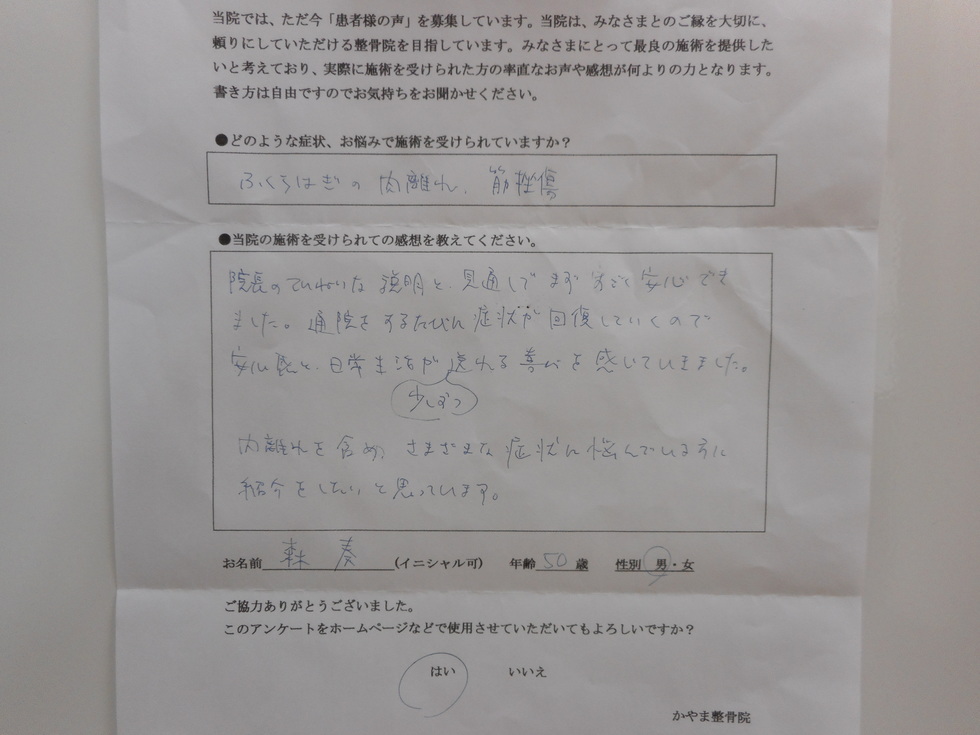 当院では、ただ今「患者様の声」を募集しています。当院は、みなさまとのご縁を大切に、
頼りにしていただける整骨院を目指しています。みなさまにとって最良の施術を提供した
いと考えており、実際に施術を受けられた方の率直なお声や感想が何よりの力となります。
書き方は自由ですのでお気持ちをお聞かせください。
●どのような症状、お悩みで施術を受けられていますか？
ふくらはぎの肉離れ、筋挫傷
●当院の施術を受けられての感想を教えてください。
院長のていねいな説明と、見通しで まず すごく安心でき
ました。通院をするたびに症状が回復していくので
安心感と、日常生活が送れる喜びを感じていきました。
少しずつ
肉離れを含め、さまざまな症状に悩んでいる方に
紹介をしたいと思っています。
お名前 森 奏 (イニシャル可) 年齢 50 歳 性別 男・女
ご協力ありがとうございました。
このアンケートをホームページなどで使用させていただいてもよろしいですか？
はい いいえ
かやま整骨院